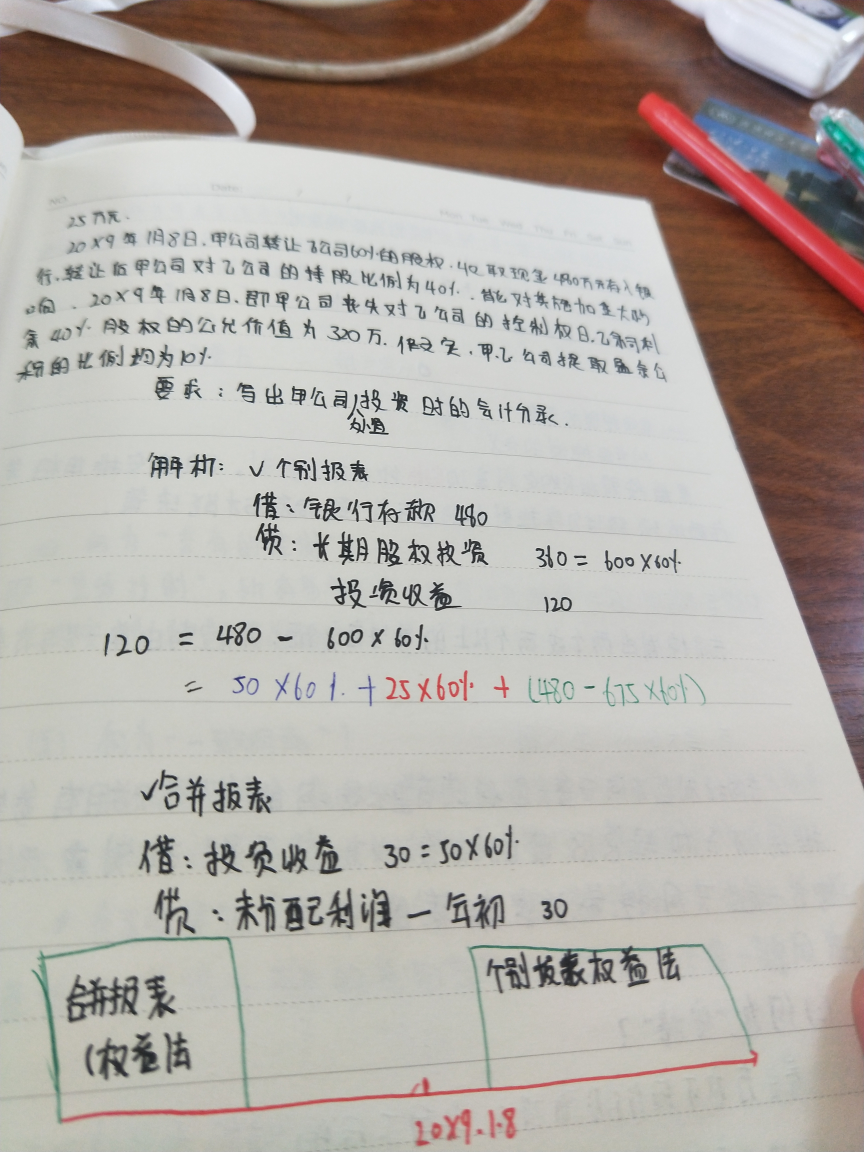 NO.
Date: / /
Mon Tue Wed Thu Fri Sat Sun
25万元.
20X9年1月8日.甲公司转让乙公司60%的股权.收取现金480万元存入银
行.转让后甲公司对乙公司的持股比例为40%.能对其施加重大影
响.20X9年1月8日.即甲公司丧失对乙公司的控制权日.乙公司剩
余40%股权的公允价值为320万.假定.甲.乙公司提取盈余公
积的比例均为10%.
要求:写出甲公司处置投资时的会计分录.
解析:√个别报表
借:银行存款 480
贷:长期股权投资 360=600X60%
投资收益 120
120 = 480 - 600X60%
= 50X60% + 25X60% + (480-675X60%)
√合并报表
借:投资收益 30=50X60%
贷:未分配利润一年初 30
合并报表 个别报表权益法
(权益法
20X9.1.8